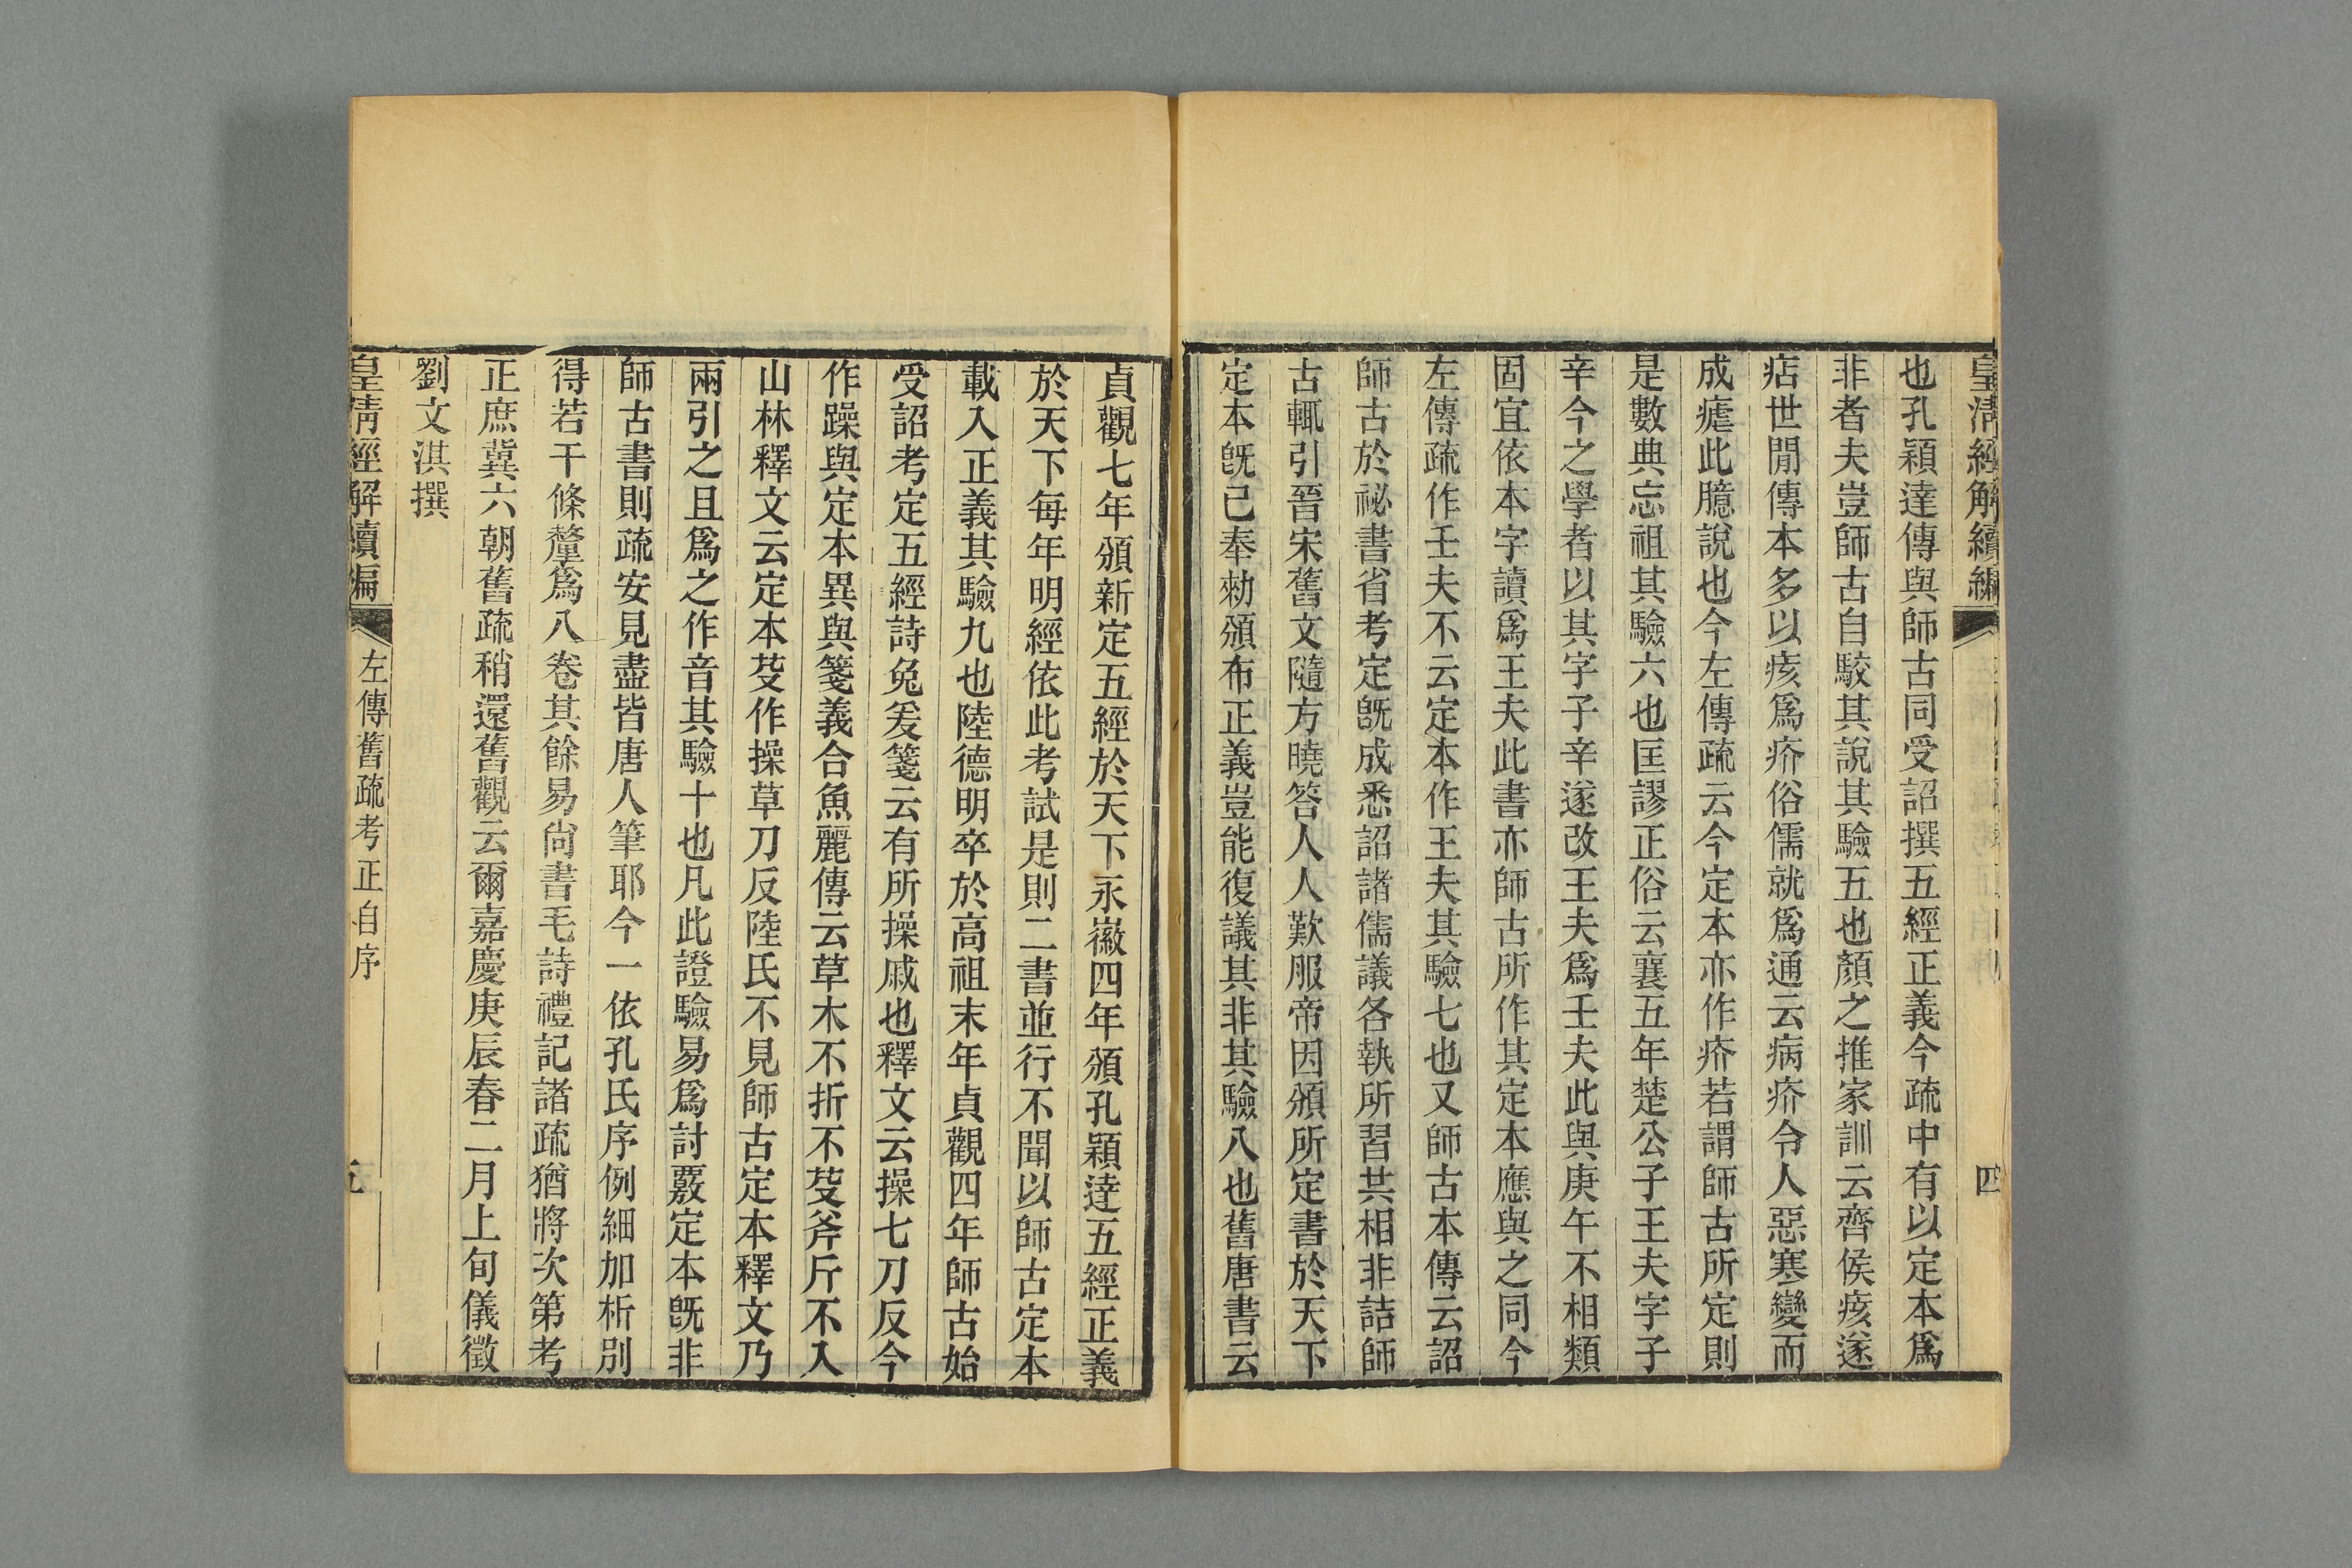 皇清經解續編
四
也孔穎達傳與師古同受詔撰五經正義今疏中有以定本爲
非者夫豈師古自駮其說其驗五也顏之推家訓云齊侯痎遂
痁世閒傳本多以痎爲疥俗儒就爲通云病疥令人惡寒變而
成瘧此臆說也今左傳疏云今定本亦作疥若謂師古所定則
是數典忘祖其驗六也匡謬正俗云襄五年楚公子王夫字子
辛今之學者以其字子辛遂改王夫爲壬夫此與庚午不相類
固宜依本字讀爲王夫此書亦師古所作其定本應與之同今
左傳疏作壬夫不云定本作王夫其驗七也又師古本傳云詔
師古於祕書省考定旣成悉詔諸儒議各執所習共相非詰師
古輒引晉宋舊文隨方曉答人人歎服帝因頒所定書於天下
定本旣已奉勑頒布正義豈能復議其非其驗八也舊唐書云
貞觀七年頒新定五經於天下永徽四年頒孔穎達五經正義
於天下每年明經依此考試是則二書並行不聞以師古定本
載入正義其驗九也陸德明卒於高祖末年貞觀四年師古始
受詔考定五經詩兔爰箋云有所操戚也釋文云操七刀反今
作躁與定本異與箋義合魚麗傳云草木不折不芟斧斤不入
山林釋文云定本芟作操草刀反陸氏不見師古定本釋文乃
兩引之且爲之作音其驗十也凡此證驗易爲討覈定本旣非
師古書則疏安見盡皆唐人筆耶今一依孔氏序例細加析別
得若干條釐爲八卷其餘易尙書毛詩禮記諸疏猶將次第考
正庶冀六朝舊疏稍還舊觀云爾嘉慶庚辰春二月上旬儀徵
劉文淇撰
皇清經解續編
左傳舊疏考正自序
五